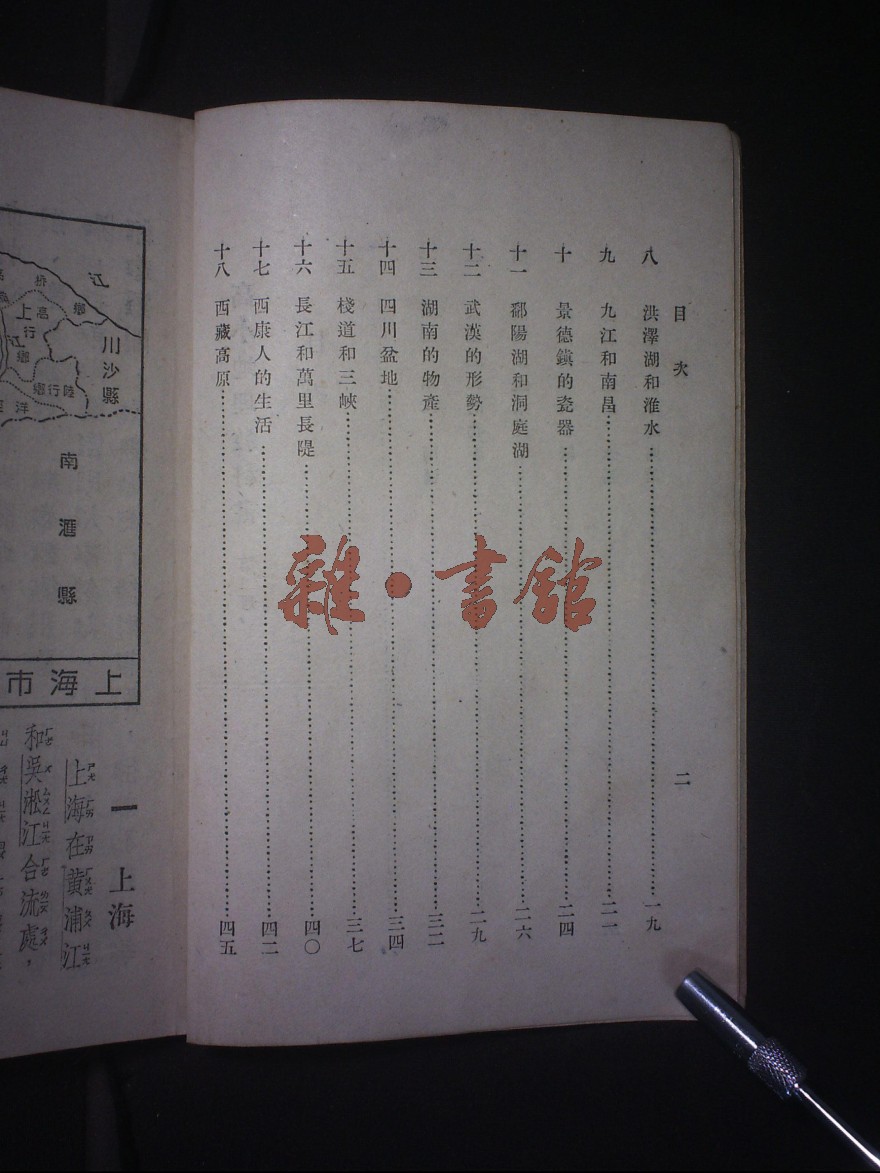 目次
八 洪澤湖和淮水 一九
九 九江和南昌 二一
十 景德鎮的瓷器 二四
十一 鄱陽湖和洞庭湖 二六
十二 武漢的形勢 二九
十三 湖南的物產 三二
十四 四川盆地 三四
十五 棧道和三峽 三七
十六 長江和萬里長隄 四〇
十七 西康人的生活 四二
十八 西藏高原 四五
二
雜·書館
江
川沙縣
南滙縣
上海市
一 上海
上海在黃浦江
和吳淞江合流處，